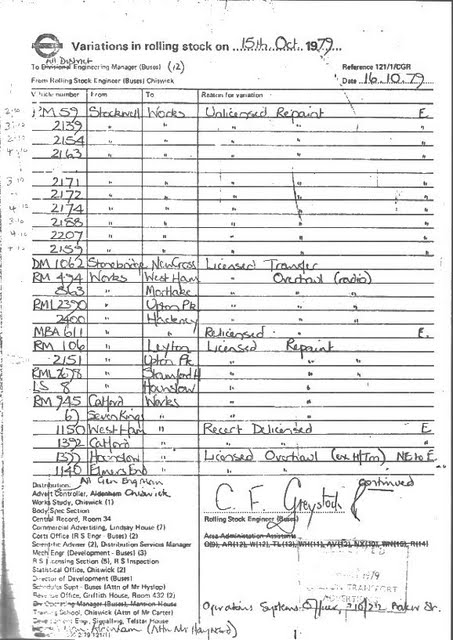 Variations in rolling stock on 15th Oct. 1979.
All District
To Divisional Engineering Manager (Buses) (12) Reference 121/1/CGR
From Rolling Stock Engineer (Buses) Chiswick Date 16.10.79
Vehicle number From To Reason for variation
RM 59 Stockwell Works Unlicensed Repaint E.
2139 " " " " "
2154 " " " " "
2163 " " " " "
2171 " " " " "
2172 " " " " "
2174 " " " " "
2188 " " " " "
2207 " " " " "
2159 " " " " "
DM 1062 Stonebridge New Cross Licensed Transfer
RM 494 Works West Ham " Overhaul (radio)
863 " Mortlake " " "
RML 2390 " Upton Pk " " "
2400 " Hackney " " "
MBA 611 " " Relicensed " E.
RM 106 " Leyton Licensed Repaint
2151 " Upton Pk " "
RML 2678 " Stamford H " "
LS 8 " Hounslow " "
RM 945 Catford Works " "
67 Seven Kings " " "
1150 West Ham " Recent Delicensed E
1392 Catford " " " "
Hounslow " Licensed Overhaul (ex H/Tm) NE to E.
1140 Elmers End " " "
Distribution: All Gen Eng Man continued
Advert Controller, Aldenham Chiswick
Works Study, Chiswick (1)
Body Spec Section
Central Record, Room 34
Commercial Advertising, Lindsay House (7)
Certs Office (R S Engr - Buses) (2)
Scientific Adviser (2), Distribution Services Manager
Mech Engr (Development - Buses) (3)
R S Licensing Section (5), R S Inspection
Statistical Office, Chiswick (2)
Director of Development (Buses)
Schedules Supt - Buses (Attn of Mr Hyslop)
Revenue Office, Griffith House, Room 432 (2)
Div Operating Manager (Buses), Mansion House
Training School, Chiswick (Attn of Mr Carter)
Development Engr, Signalling, Telstar House
Aldenham (Attn Mr Hayward)
C. F. Greystock
Rolling Stock Engineer (Buses)
Area Administration Assistants
1979
TRANSPORT
Operations Systems Office, Baker St.